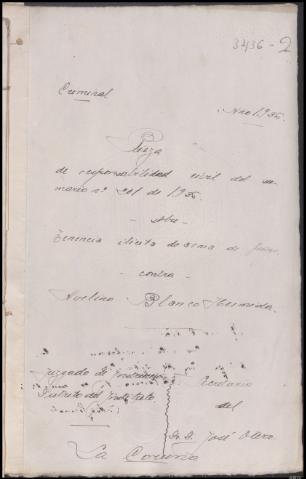 3436-2
Criminal
Año 1936
Pieza
de responsabilidad civil del su-
mario nº 201 de 1936
sobre
Tenencia ilícita de arma de fuego
contra
Avelino Blanco Hermida
Juzgado de Instrucción
Distrito del Instituto
Secretario
del
D. José Otero
La Coruña